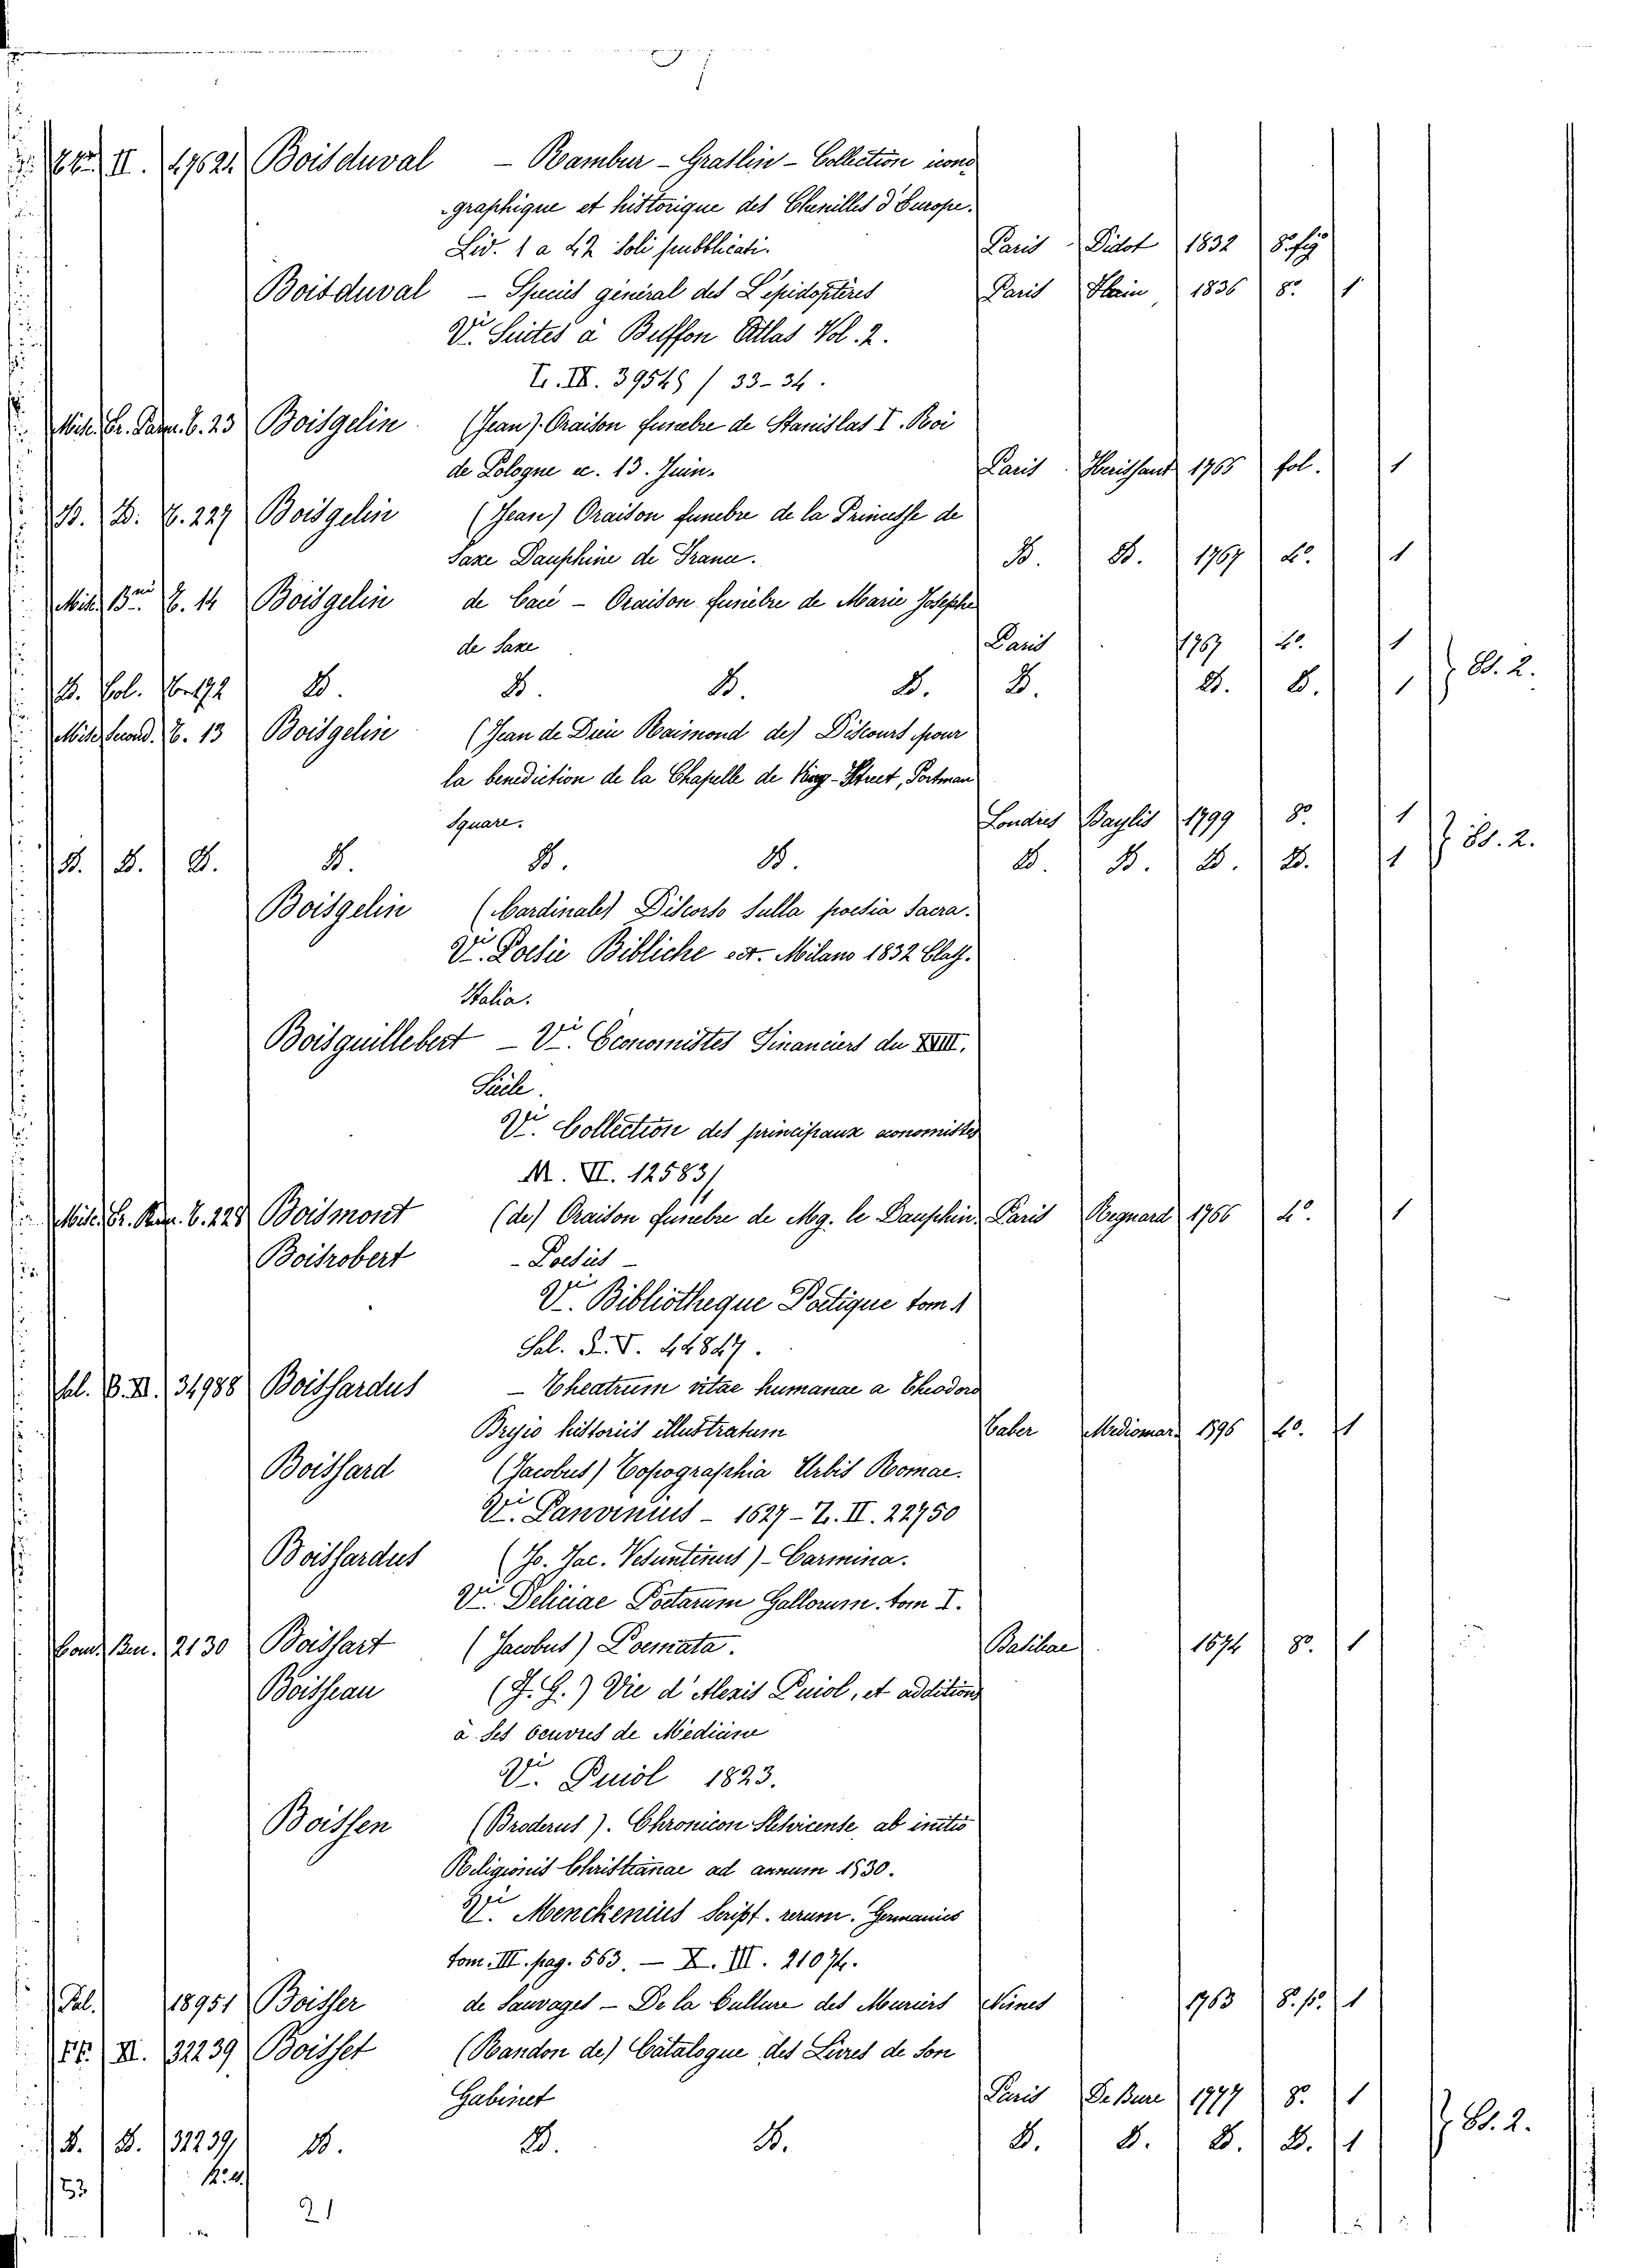 II. 17621 Boisduval - Rambur - Graslin - Collection icono
-graphique et historique des Chenilles d'Europe.
Liv. 1 a 42 soli pubblicati. Paris Didot 1832 8.° fig
Boisduval - Species général des Lépidoptères Paris 1836 8.° 1
Vi Suites à Buffon Atlas Vol. 2.
Tr. IX. 39545 / 33-34.
Misc. Gr. Parm. C. 23 Boisgelin (Jean). Oraison funebre de Stanislas I. Roi
de Pologne ec. 13. Juin. Paris Herissant 1765 fol. 1
D. D. C. 227 Boisgelin (Jean) Oraison funebre de la Princesse de
Saxe Dauphine de France. D. D. 1767 4.° 1
Misc. C. 14 Boisgelin de Cucé - Oraison funèbre de Marie Josephe
de Saxe Paris 1767 4.° 1
D. Vol. 192 D. D. D. D. D. D. D. 1 } Es. 2.
Misc. Second. C. 13 Boisgelin (Jean de Dieu Raimond de) Discours pour
la benediction de la Chapelle de King-Street, Portman
Square. Londres Baylis 1799 8.° 1
D. D. D. D. D. D. D. D. D. D. 1 } Es. 2.
Boisgelin (Cardinale) Discorso sulla poesia sacra.
Vi Poesie Bibliche ec. Milano 1832 Class.
Italia.
Boisguillebert - Vi. Economistes Financiers du XVIII.
Siècle.
Vi. Collection des principaux economistes
M. VI. 12583/
Misc. Gr. C. 228 Boismont (de) Oraison funebre de Mg. le Dauphin. Paris Regnard 1766 4.° 1
Boisrobert - Poesies -
Vi. Bibliotheque Poëtique tom. 1
Sal. 44847.
Sal. B. XI. 34988 Boissardus - Theatrum vitae humanae a Theodoro
Bryio historiis illustratum Faber Mediomar. 1596 4.° 1
Boissard (Jacobus) Topographia Urbis Romae.
Vi. Panvinius - 1627 - Z. II. 22750
Boissardus (Jo. Jac. Vesuntinus) - Carmina.
Vi. Deliciae Poëtarum Gallorum. tom I.
2130 Boissart (Jacobus) Poemata. Basileae 1574 8.° 1
Boisseau (J. G.) Vie d'Alexis Puiol, et additions
à ses oeuvres de Medicine
Vi. Puiol 1823.
Boissen (Broderus). Chronicon Slesvicense ab initio
Religionis Christianae ad annum 1530.
Vi. Menckenius Script. rerum. Germanics
tom. III. pag. 563. - X. III. 21074.
Pal. 18951 Boisser de Sauvages - De la Culture des Muriers Nimes 1763 8.° p.° 1
FF. XI. 32239 Boisset (Randon de) Catalogue des Livres de son
Gabinet Paris De Bure 1777 8.° 1
D. D. 32239 D. D. D. D. D. D. D. 1 } Es. 2.
21